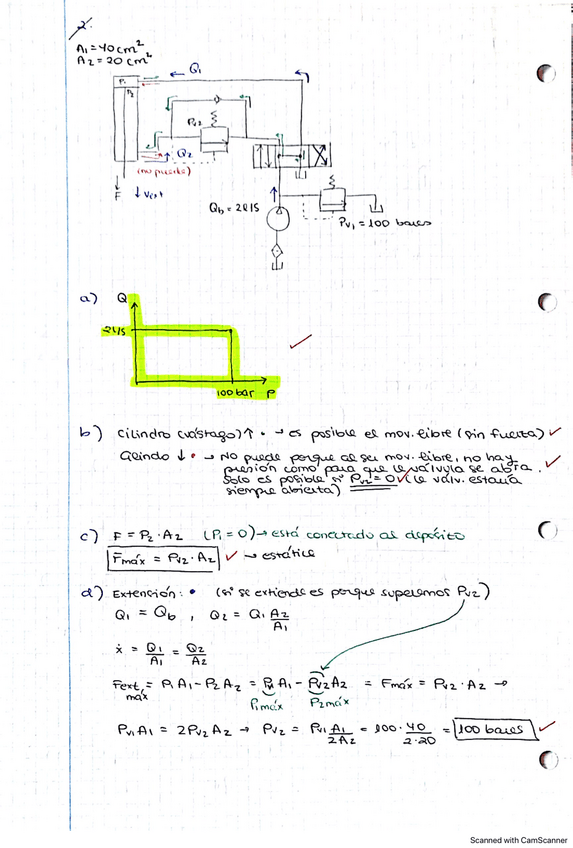 2.
A1 = 40 cm²
A2 = 20 cm²
Q1
P1
P2
Pv2
Q2
(no puede)
F ↓ Vext
Qb = 2l/s
Pv1 = 100 bares
a) Q
2l/s
100 bar P
b) Cilindro (vástago) ↑ • → es posible el mov. libre (sin fuerza)
Cilindo ↓ • → No puede porque al ser mov. libre, no hay
presión como para que la válvula se abra.
Solo es posible si Pv2 = 0 (la válv. estaría
siempre abierta)
c) F = P2 · A2 (P1 = 0) → está conectado al depósito
Fmáx = Pv2 · A2 → estática
d) Extensión: • (si se extiende es porque superamos Pv2)
Q1 = Qb , Q2 = Q1 A2/A1
ẋ = Q1/A1 = Q2/A2
Fext máx = P1 A1 - P2 A2 = Pv1 A1 - Pv2 A2 = Fmáx = Pv2 · A2 →
P1máx P2máx
Pv1 A1 = 2Pv2 A2 → Pv2 = Pv1 A1/2A2 = 100 · 40/2·20 = 100 bares
Scanned with CamScanner